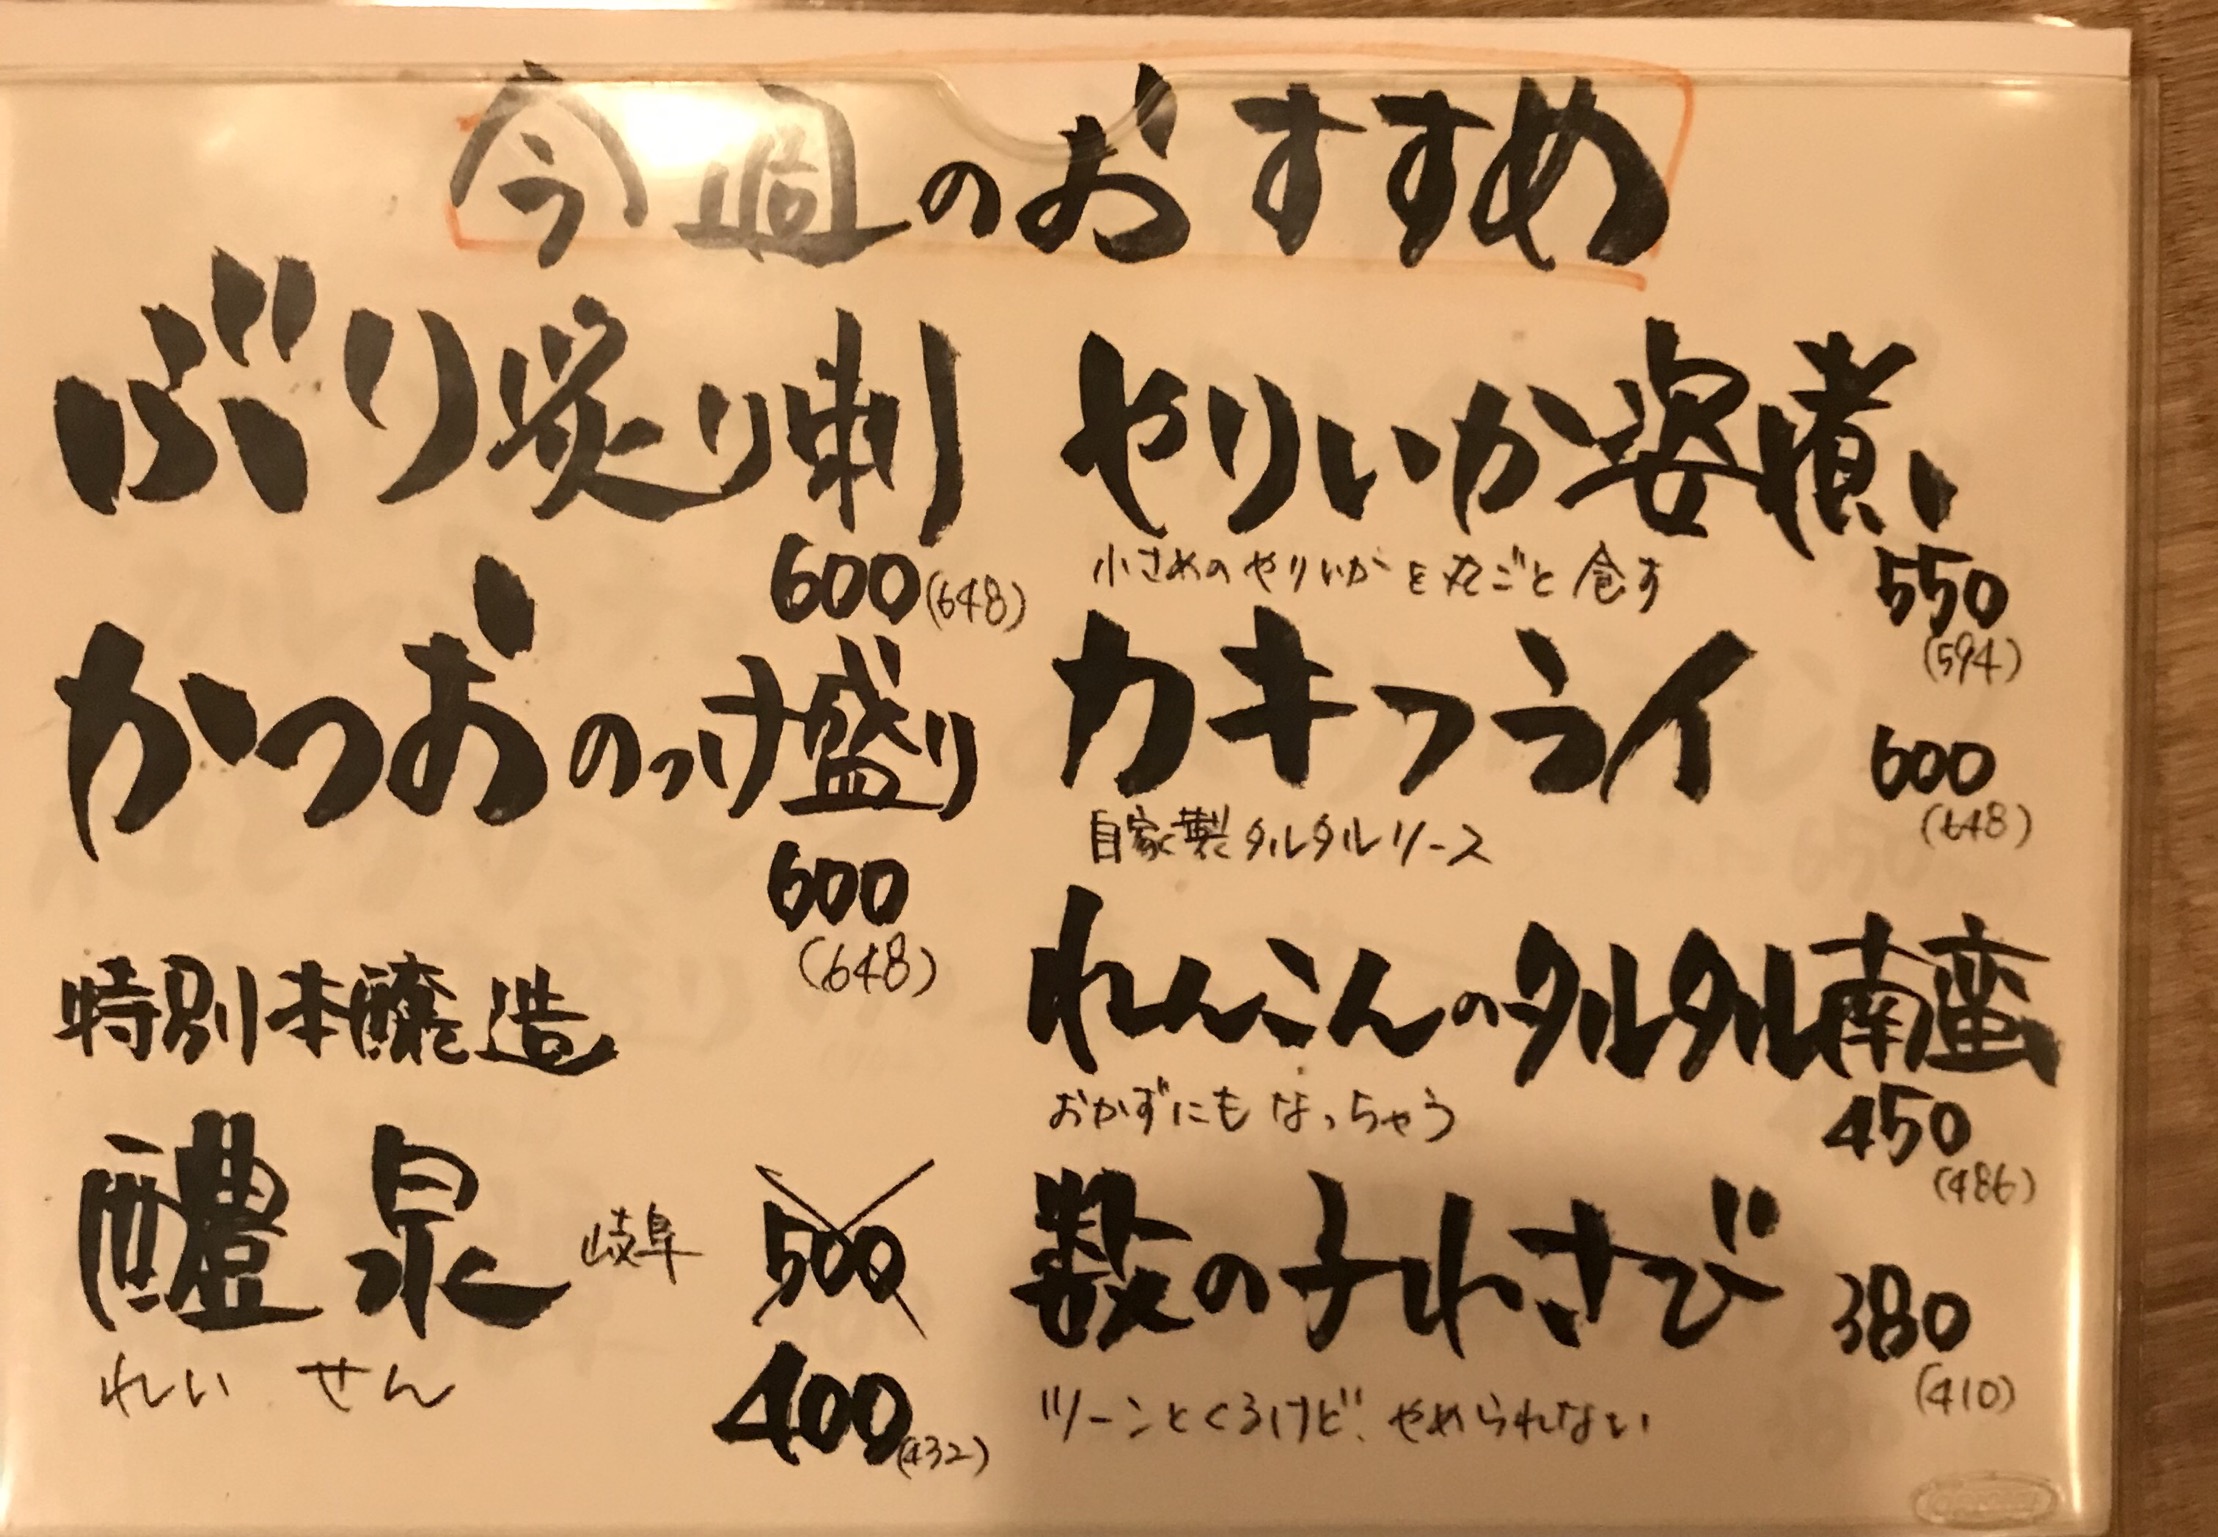 今週のおすすめ
ぶり炙り刺
600(648)
かつおのっけ盛り
600
(648)
特別本醸造
醴泉 岐阜 500
れいせん
400(432)
やりいか姿煮
小さめのやりいかを丸ごと食す
550
(594)
カキフライ
600
(648)
自家製タルタルソース
れんこんのタルタル南蛮
おかずにもなっちゃう
450
(486)
数の子わさび
380
(410)
ツーンとくるけど、やめられない